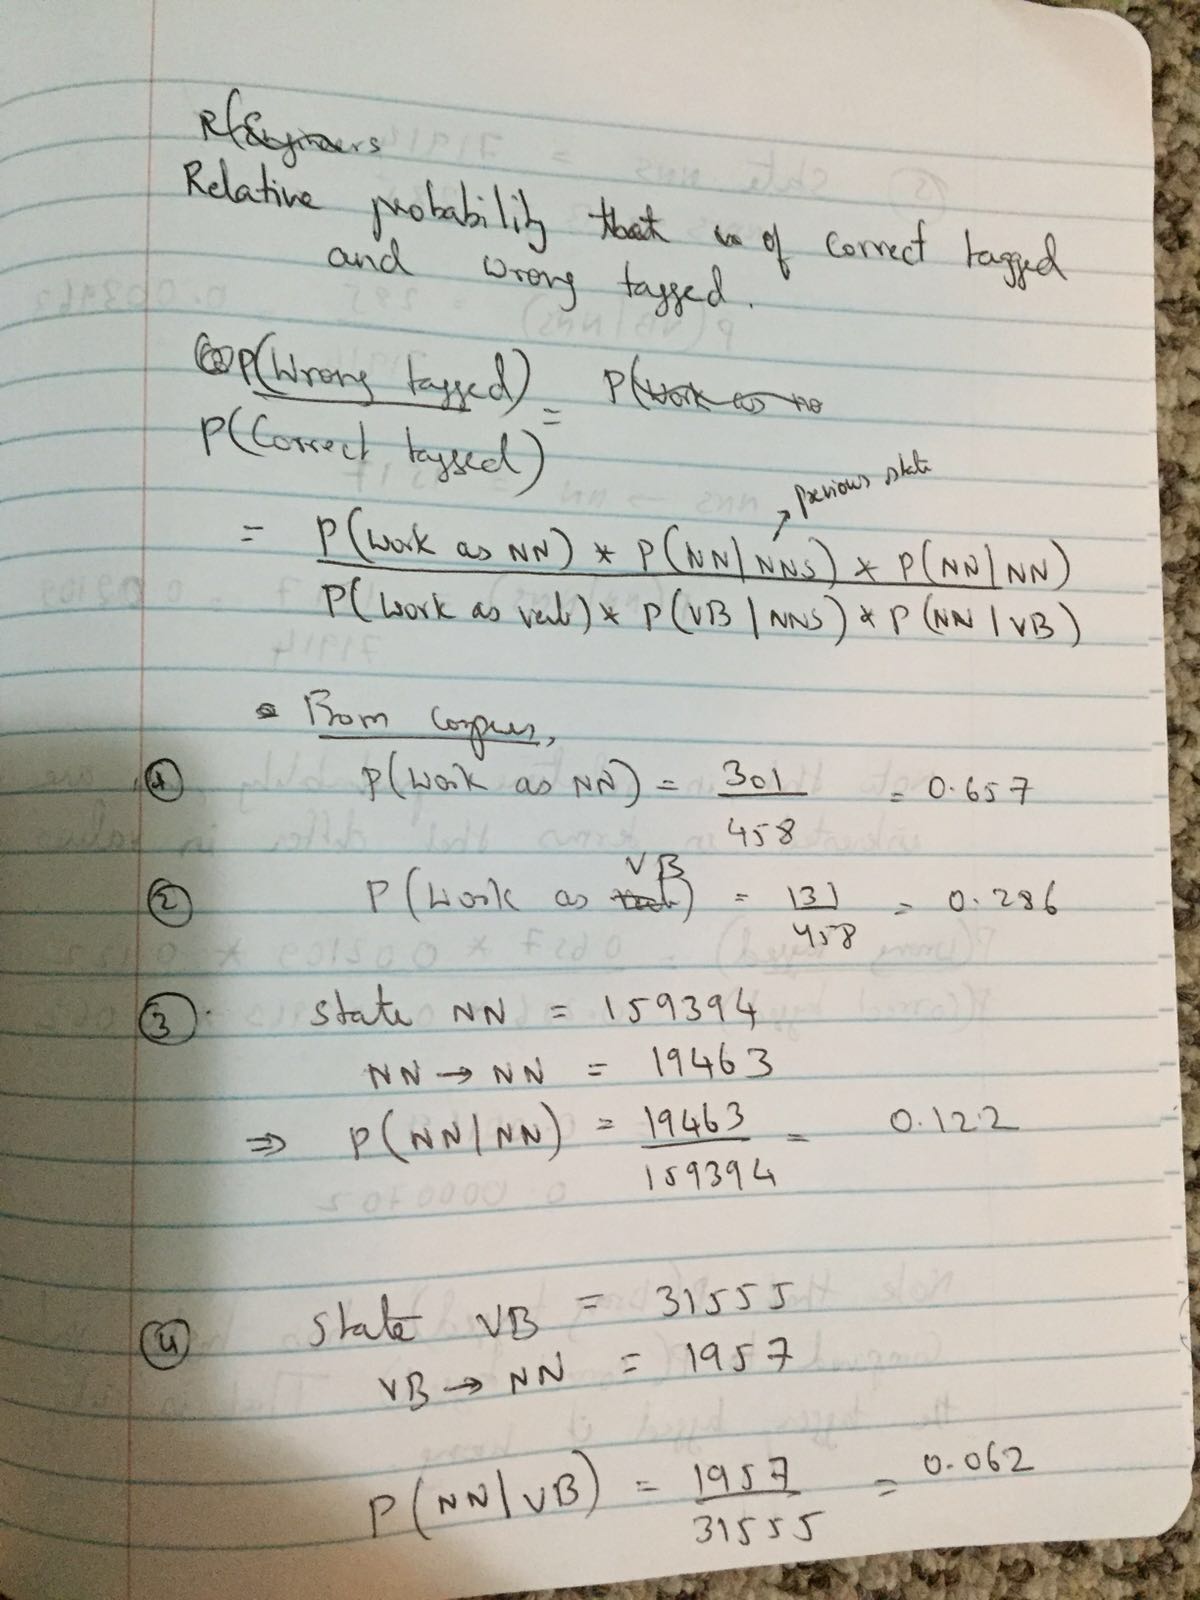 Relative probability that is of correct tagged
and wrong tagged.
P(Wrong tagged) = P(work as no
P(Correct tagged)
previous state
= P(work as NN) * P(NN|NNS) * P(NN|NN)
P(work as verb) * P(VB|NNS) * P(NN|VB)
From corpus,
① P(work as NN) = 301 = 0.657
458
VB
② P(work as = 131 = 0.286
458
③ State NN = 159394
NN → NN = 19463
⇒ P(NN|NN) = 19463 = 0.122
159394
④ State VB = 31555
VB → NN = 1957
P(NN|VB) = 1957 = 0.062
31555